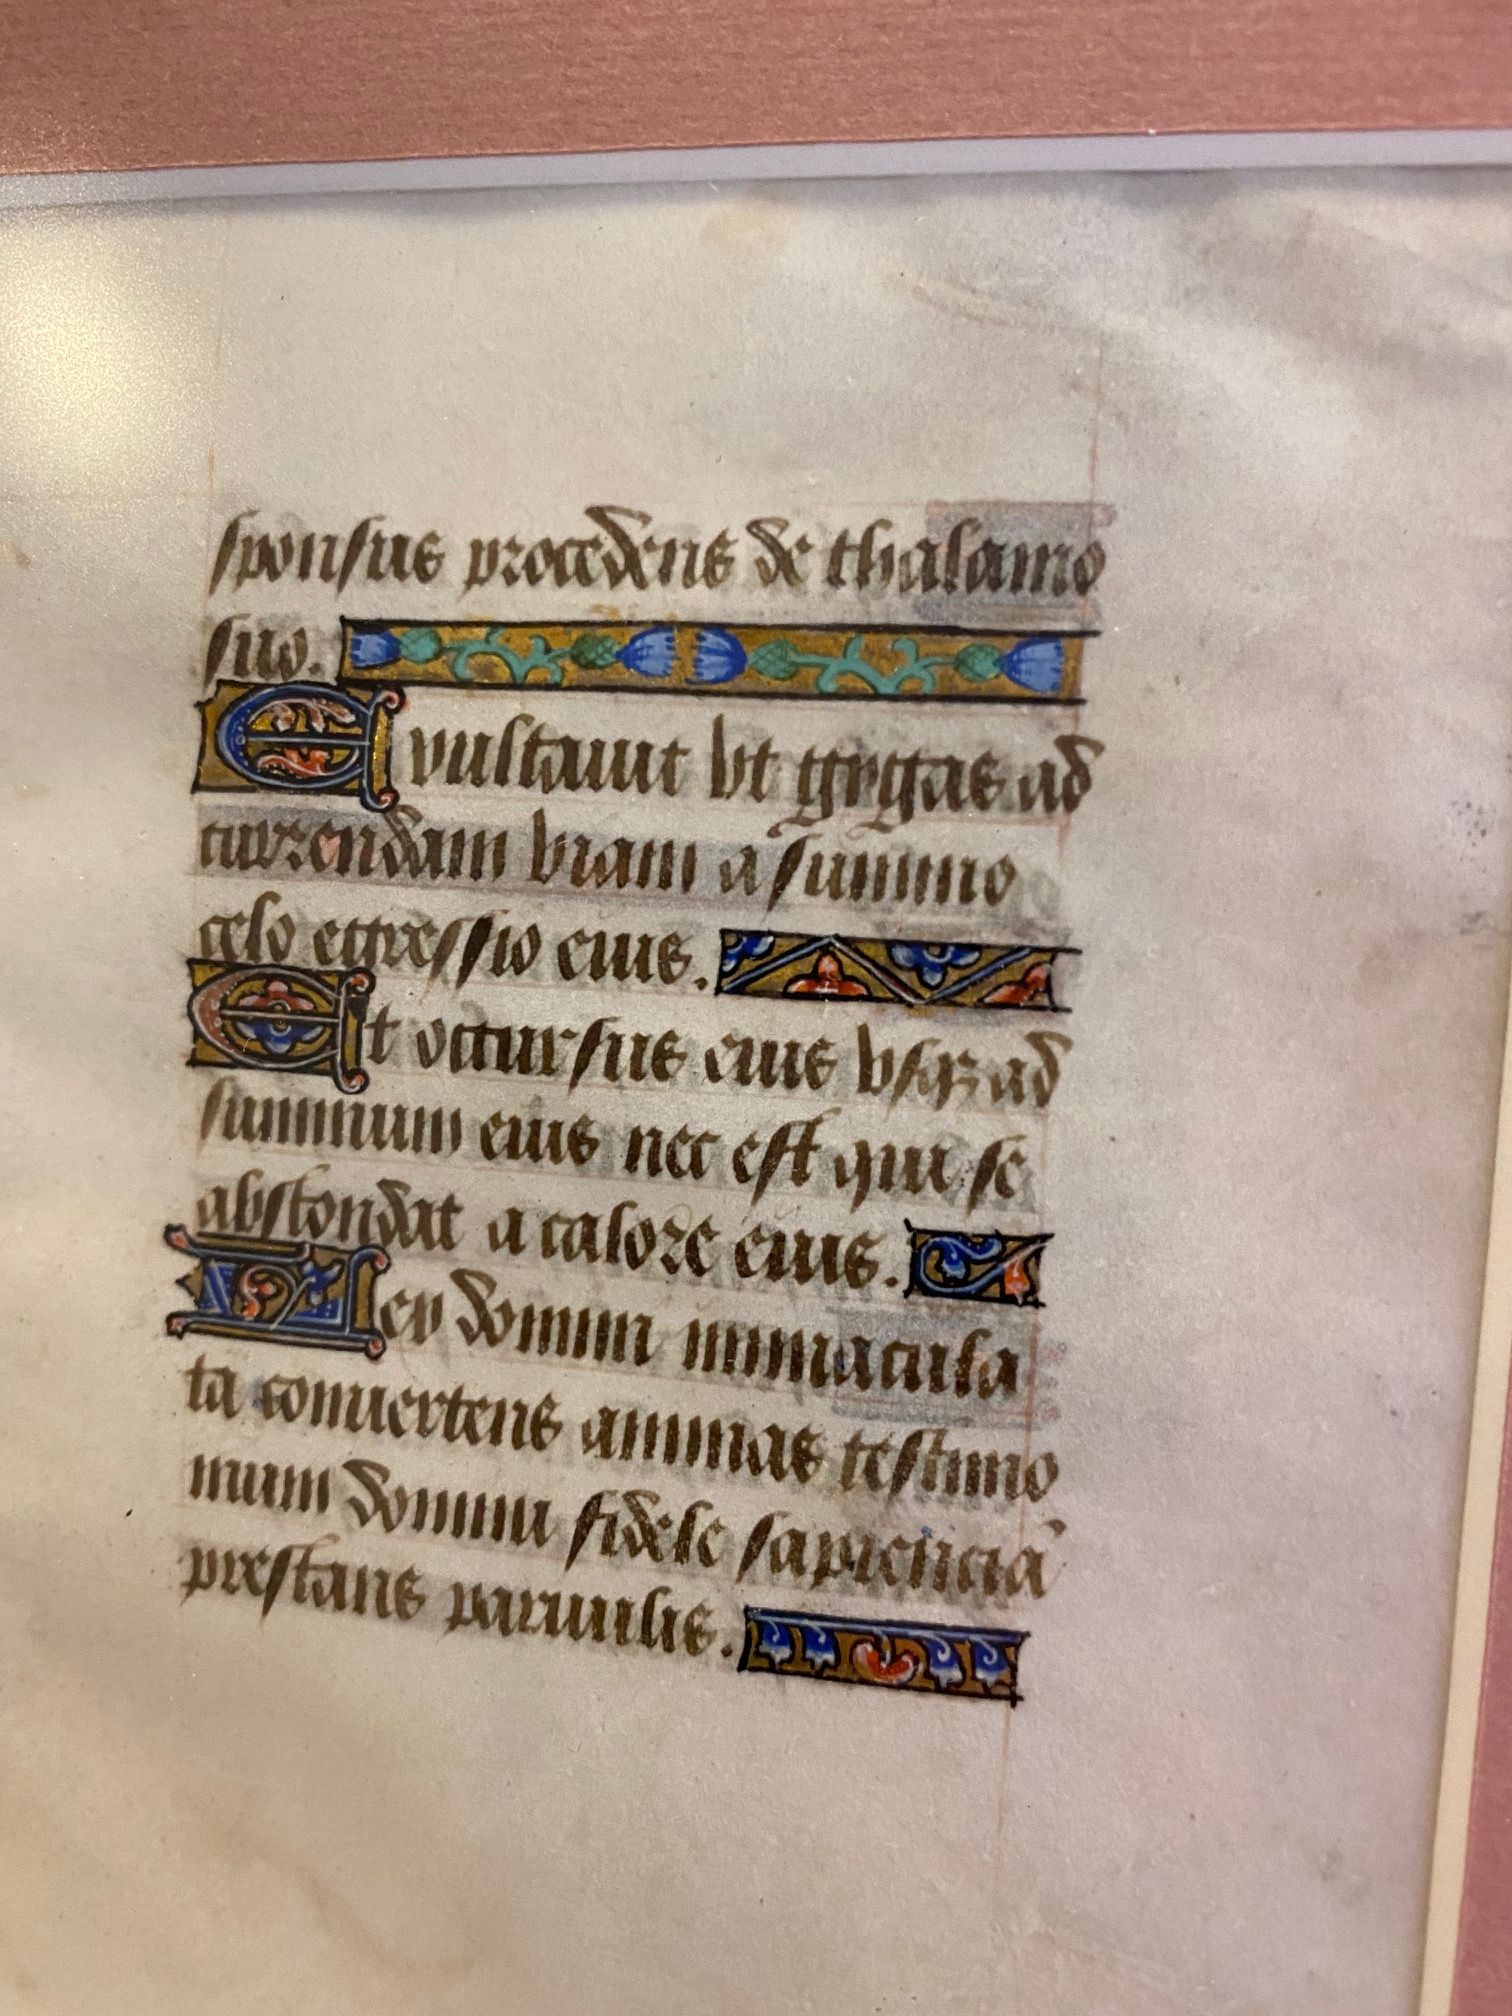 sponsus procedens de thalamo
suo.
Exultauit vt gygas ad
currendam viam a summo
celo egressio eius.
Et occursus eius vsqz ad
summum eius nec est qui se
abscondat a calore eius.
Lex domini immacula
ta conuertens animas testimo
nium domini fidele sapienciā
prestans paruulis.